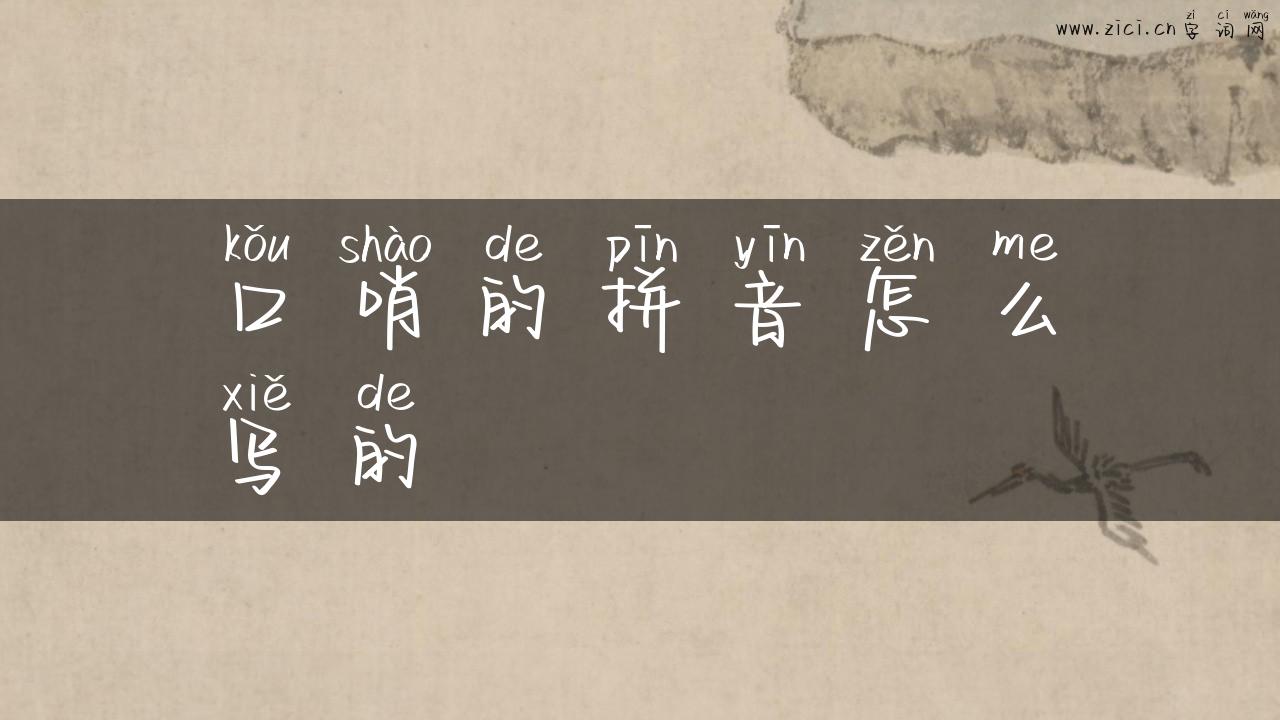 zì cí wǎng
www.zici.cn 字 词 网
kǒu shào de pīn yīn zěn me
口 哨 的 拼 音 怎 么
xiě de
写 的